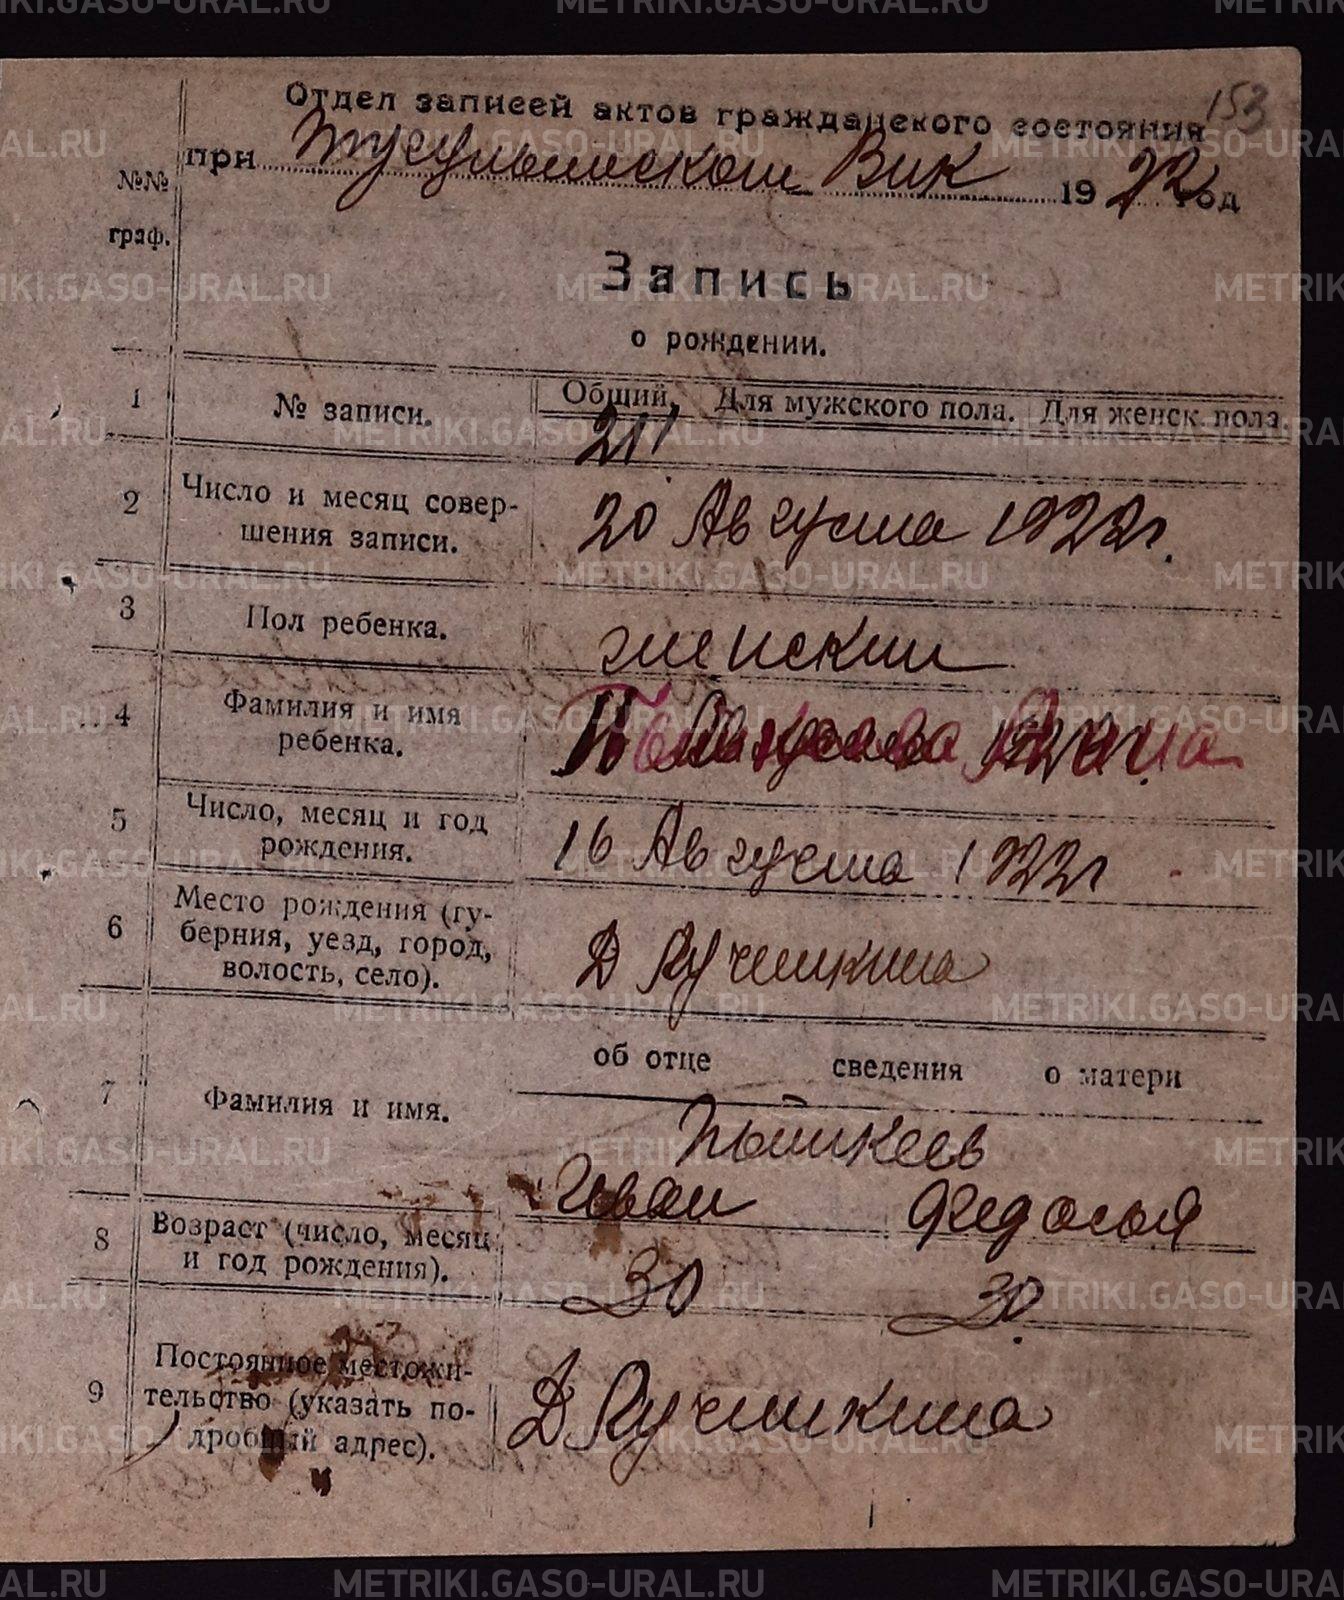 153
Отдел записей актов гражданского состояния
при Вик 1922 год
№№ граф.
Запись
о рождении.
1 № записи. Общий. Для мужского пола. Для женск. пола.
211
2 Число и месяц совершения записи. 20 Августа 1922г.
3 Пол ребенка. женский
4 Фамилия и имя ребенка.
5 Число, месяц и год рождения. 16 Августа 1922г
6 Место рождения (губерния, уезд, город, волость, село). Д
об отце сведения о матери
7 Фамилия и имя. Пышкеев
Иван Федосья
8 Возраст (число, месяц и год рождения). 30 30.
9 Постоянное местожительство (указать подробный адрес). Д
METRIKI.GASO-URAL.RU